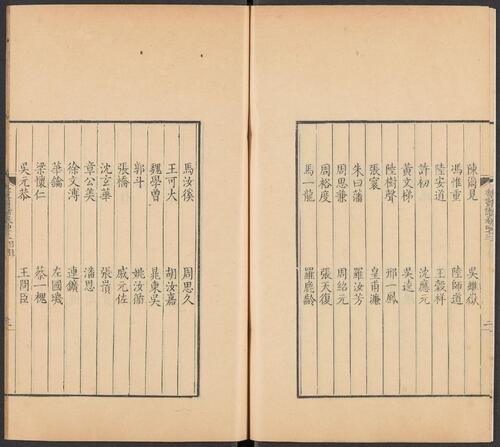 陳爾見 吳維嶽
馮惟重 陸師道
陸安道 王穀祥
許初 沈應元
黃文梯 吳逵
陸樹聲 邢一鳳
張寰 皇甫濂
朱曰藩 羅汝芳
周思兼 周紹元
周裕度 張天復
馬一龍 羅鹿齡
馬汝徯 周思久
王可大 胡汝嘉
魏學曾 晁東吳
郭斗 姚汝循
張橋 戚元佐
沈玄華 張
章公美 潘恩
徐文溥 連鑛
華鑰 左國璣
梁懷仁 蔡一槐
吳元恭 王問臣